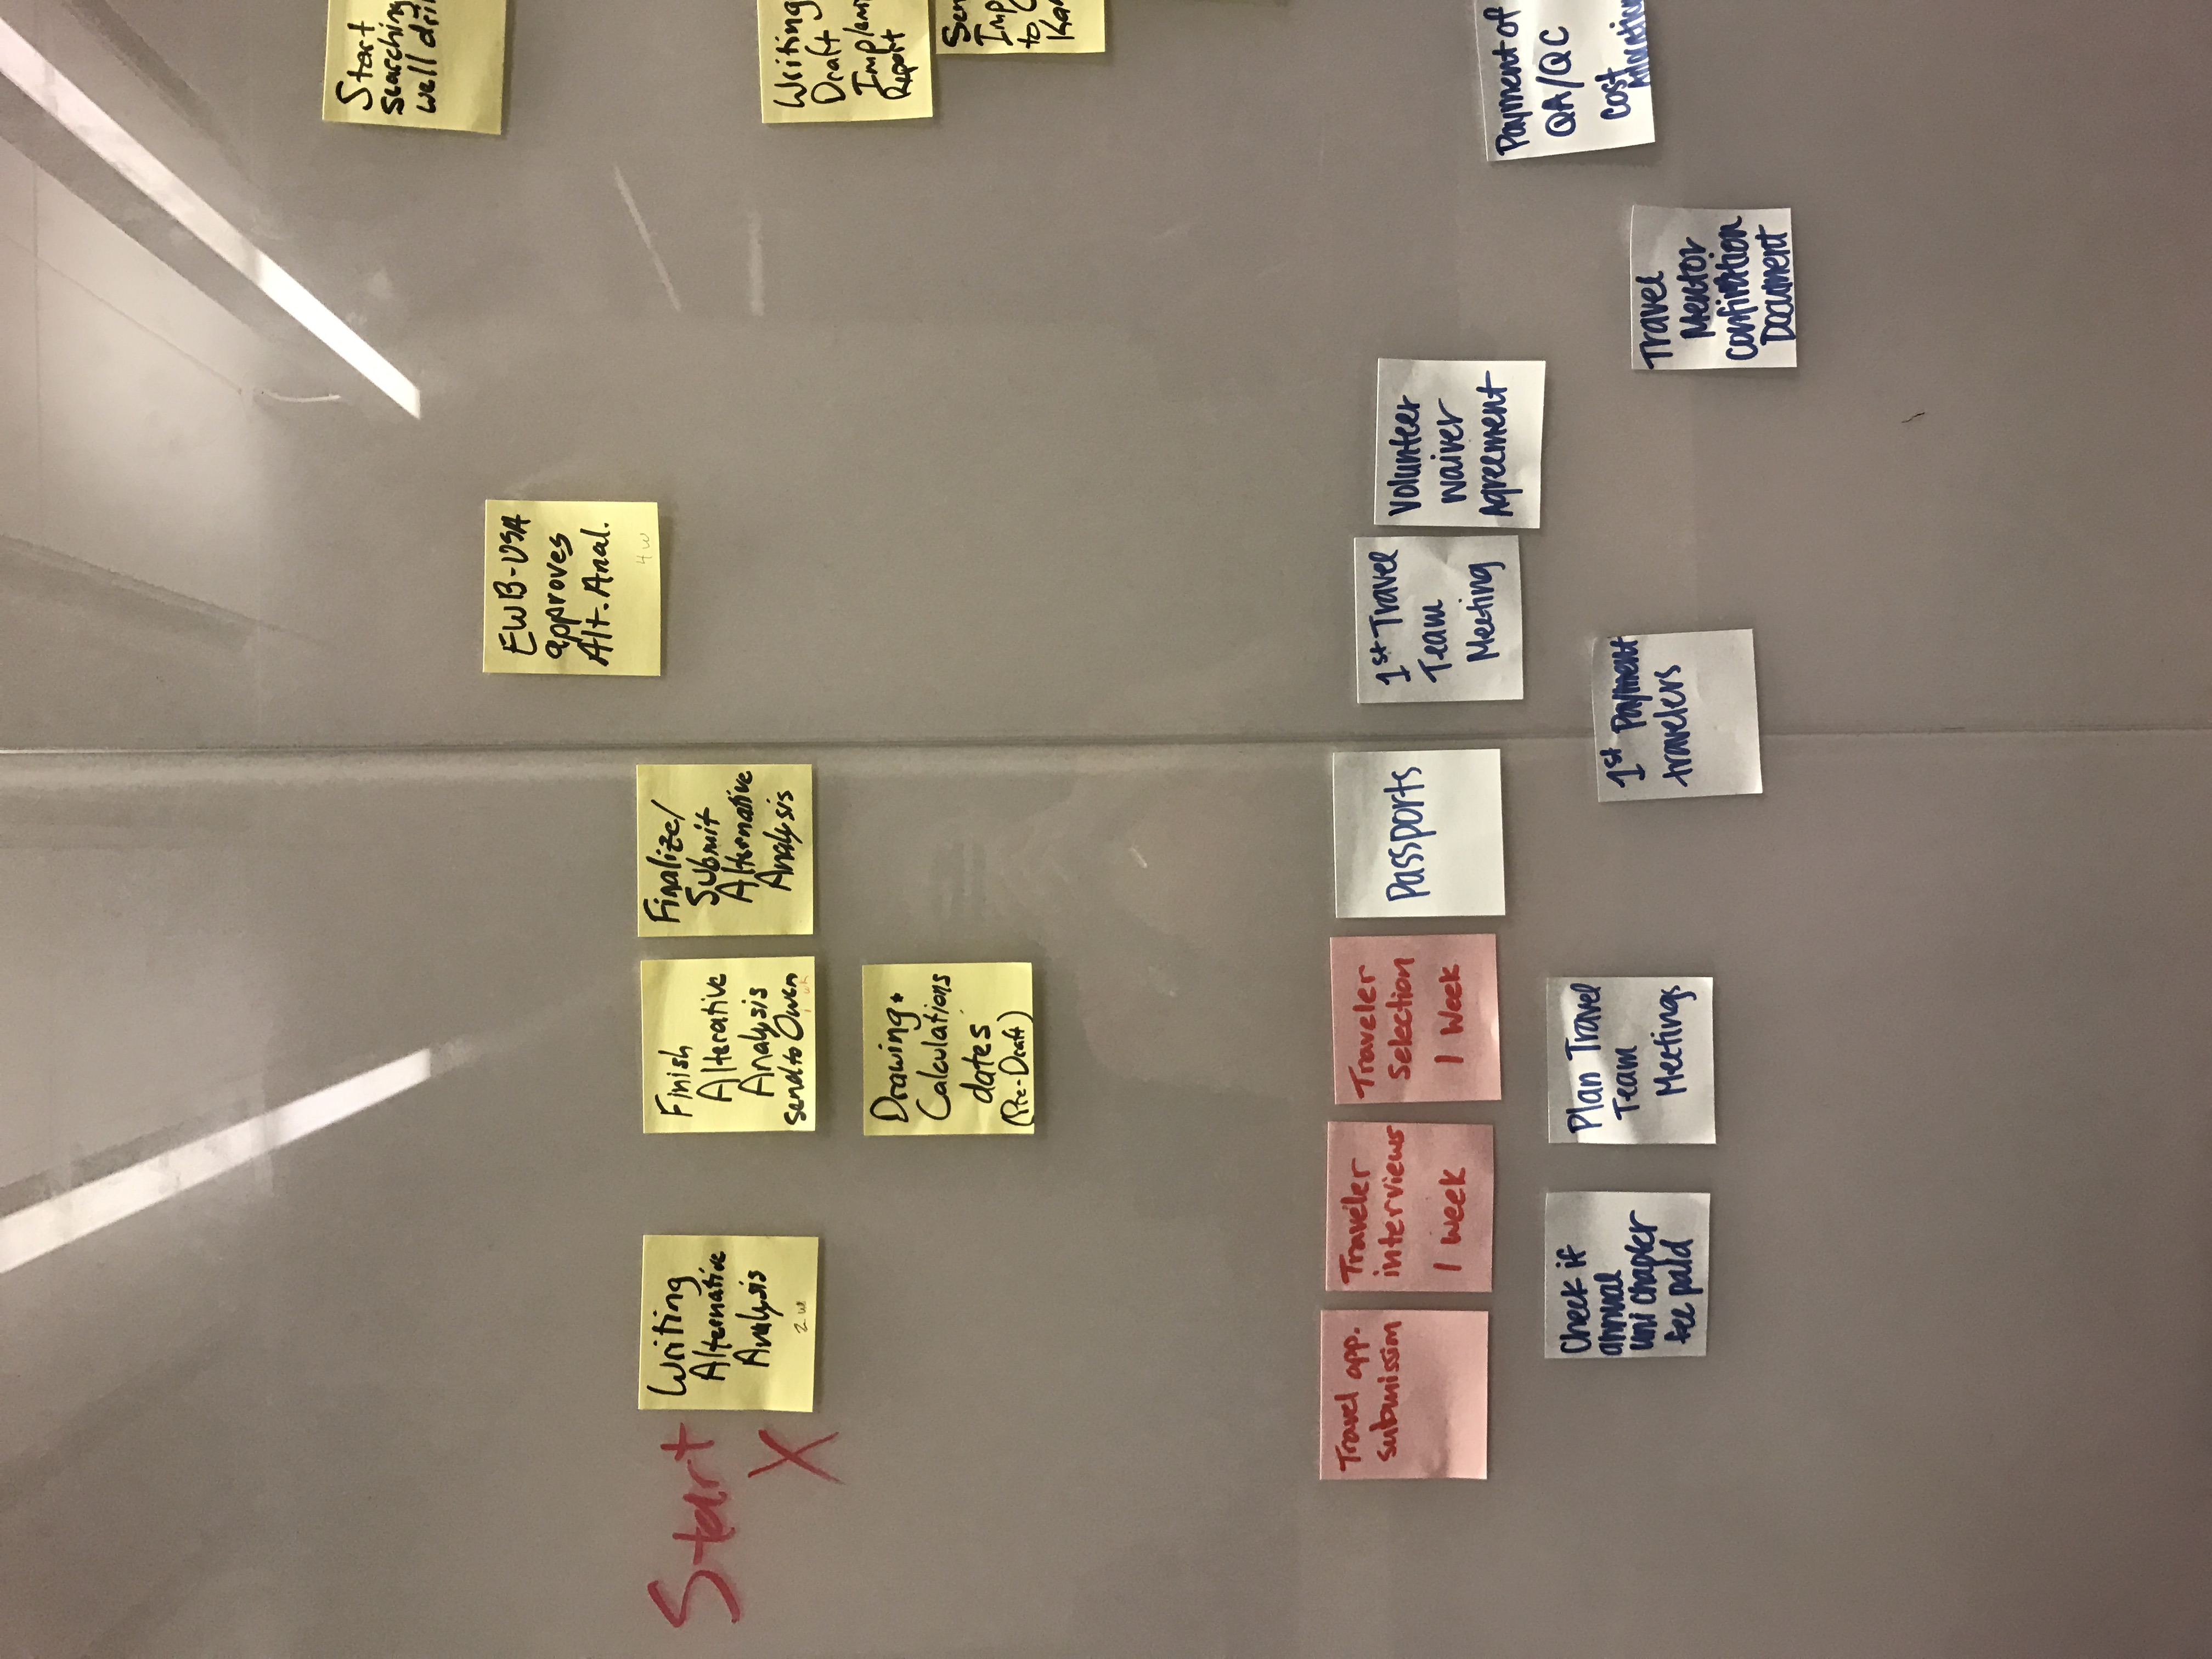 Start
searching
well
EWB-USA
approves
Alt. Anal.
4 w
Start
X
Writing
Alternative
Analysis
2 w
Finish
Alterative
Analysis
send to Owen
1 wk
Finalize/
Submit
Alternative
Analysis
Writing
Draft
Report
Drawing +
Calculations
dates
(Pre-Draft)
to
Travel app.
submission
Traveler
interviews
1 week
Traveler
Selection
1 Week
Passports
1st Travel
Team
Meeting
Volunteer
waiver
Agreement
Payment of
QA/QC
Cost
Check if
annual
uni chapter
fee paid
Plan Travel
Team
Meetings
1st Payment
travelers
Travel
Mentor
Document